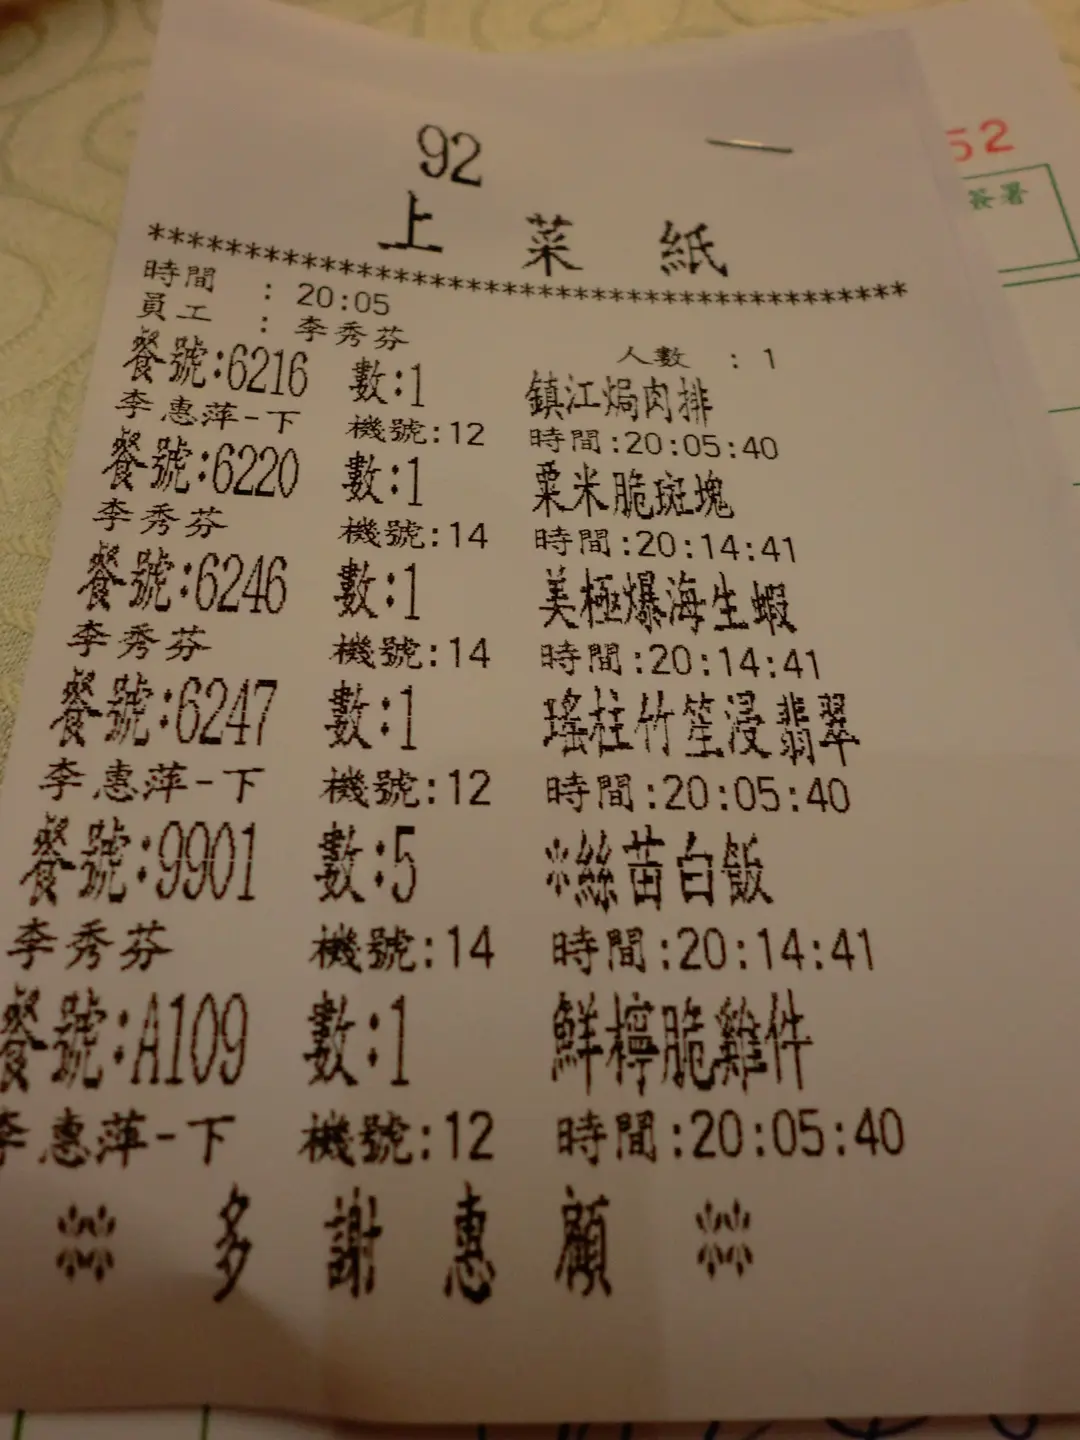 92
上菜紙
******************************************
時間 : 20:05
員工 : 李秀芬 人數 : 1
餐號:6216 數:1 鎮江焗肉排
李惠萍-下 機號:12 時間:20:05:40
餐號:6220 數:1 粟米脆斑塊
李秀芬 機號:14 時間:20:14:41
餐號:6246 數:1 美極爆海生蝦
李秀芬 機號:14 時間:20:14:41
餐號:6247 數:1 瑤柱竹笙浸翡翠
李惠萍-下 機號:12 時間:20:05:40
餐號:9901 數:5 *絲苗白飯
李秀芬 機號:14 時間:20:14:41
餐號:A109 數:1 鮮檸脆雞件
李惠萍-下 機號:12 時間:20:05:40
** 多謝惠顧 **
52
簽署